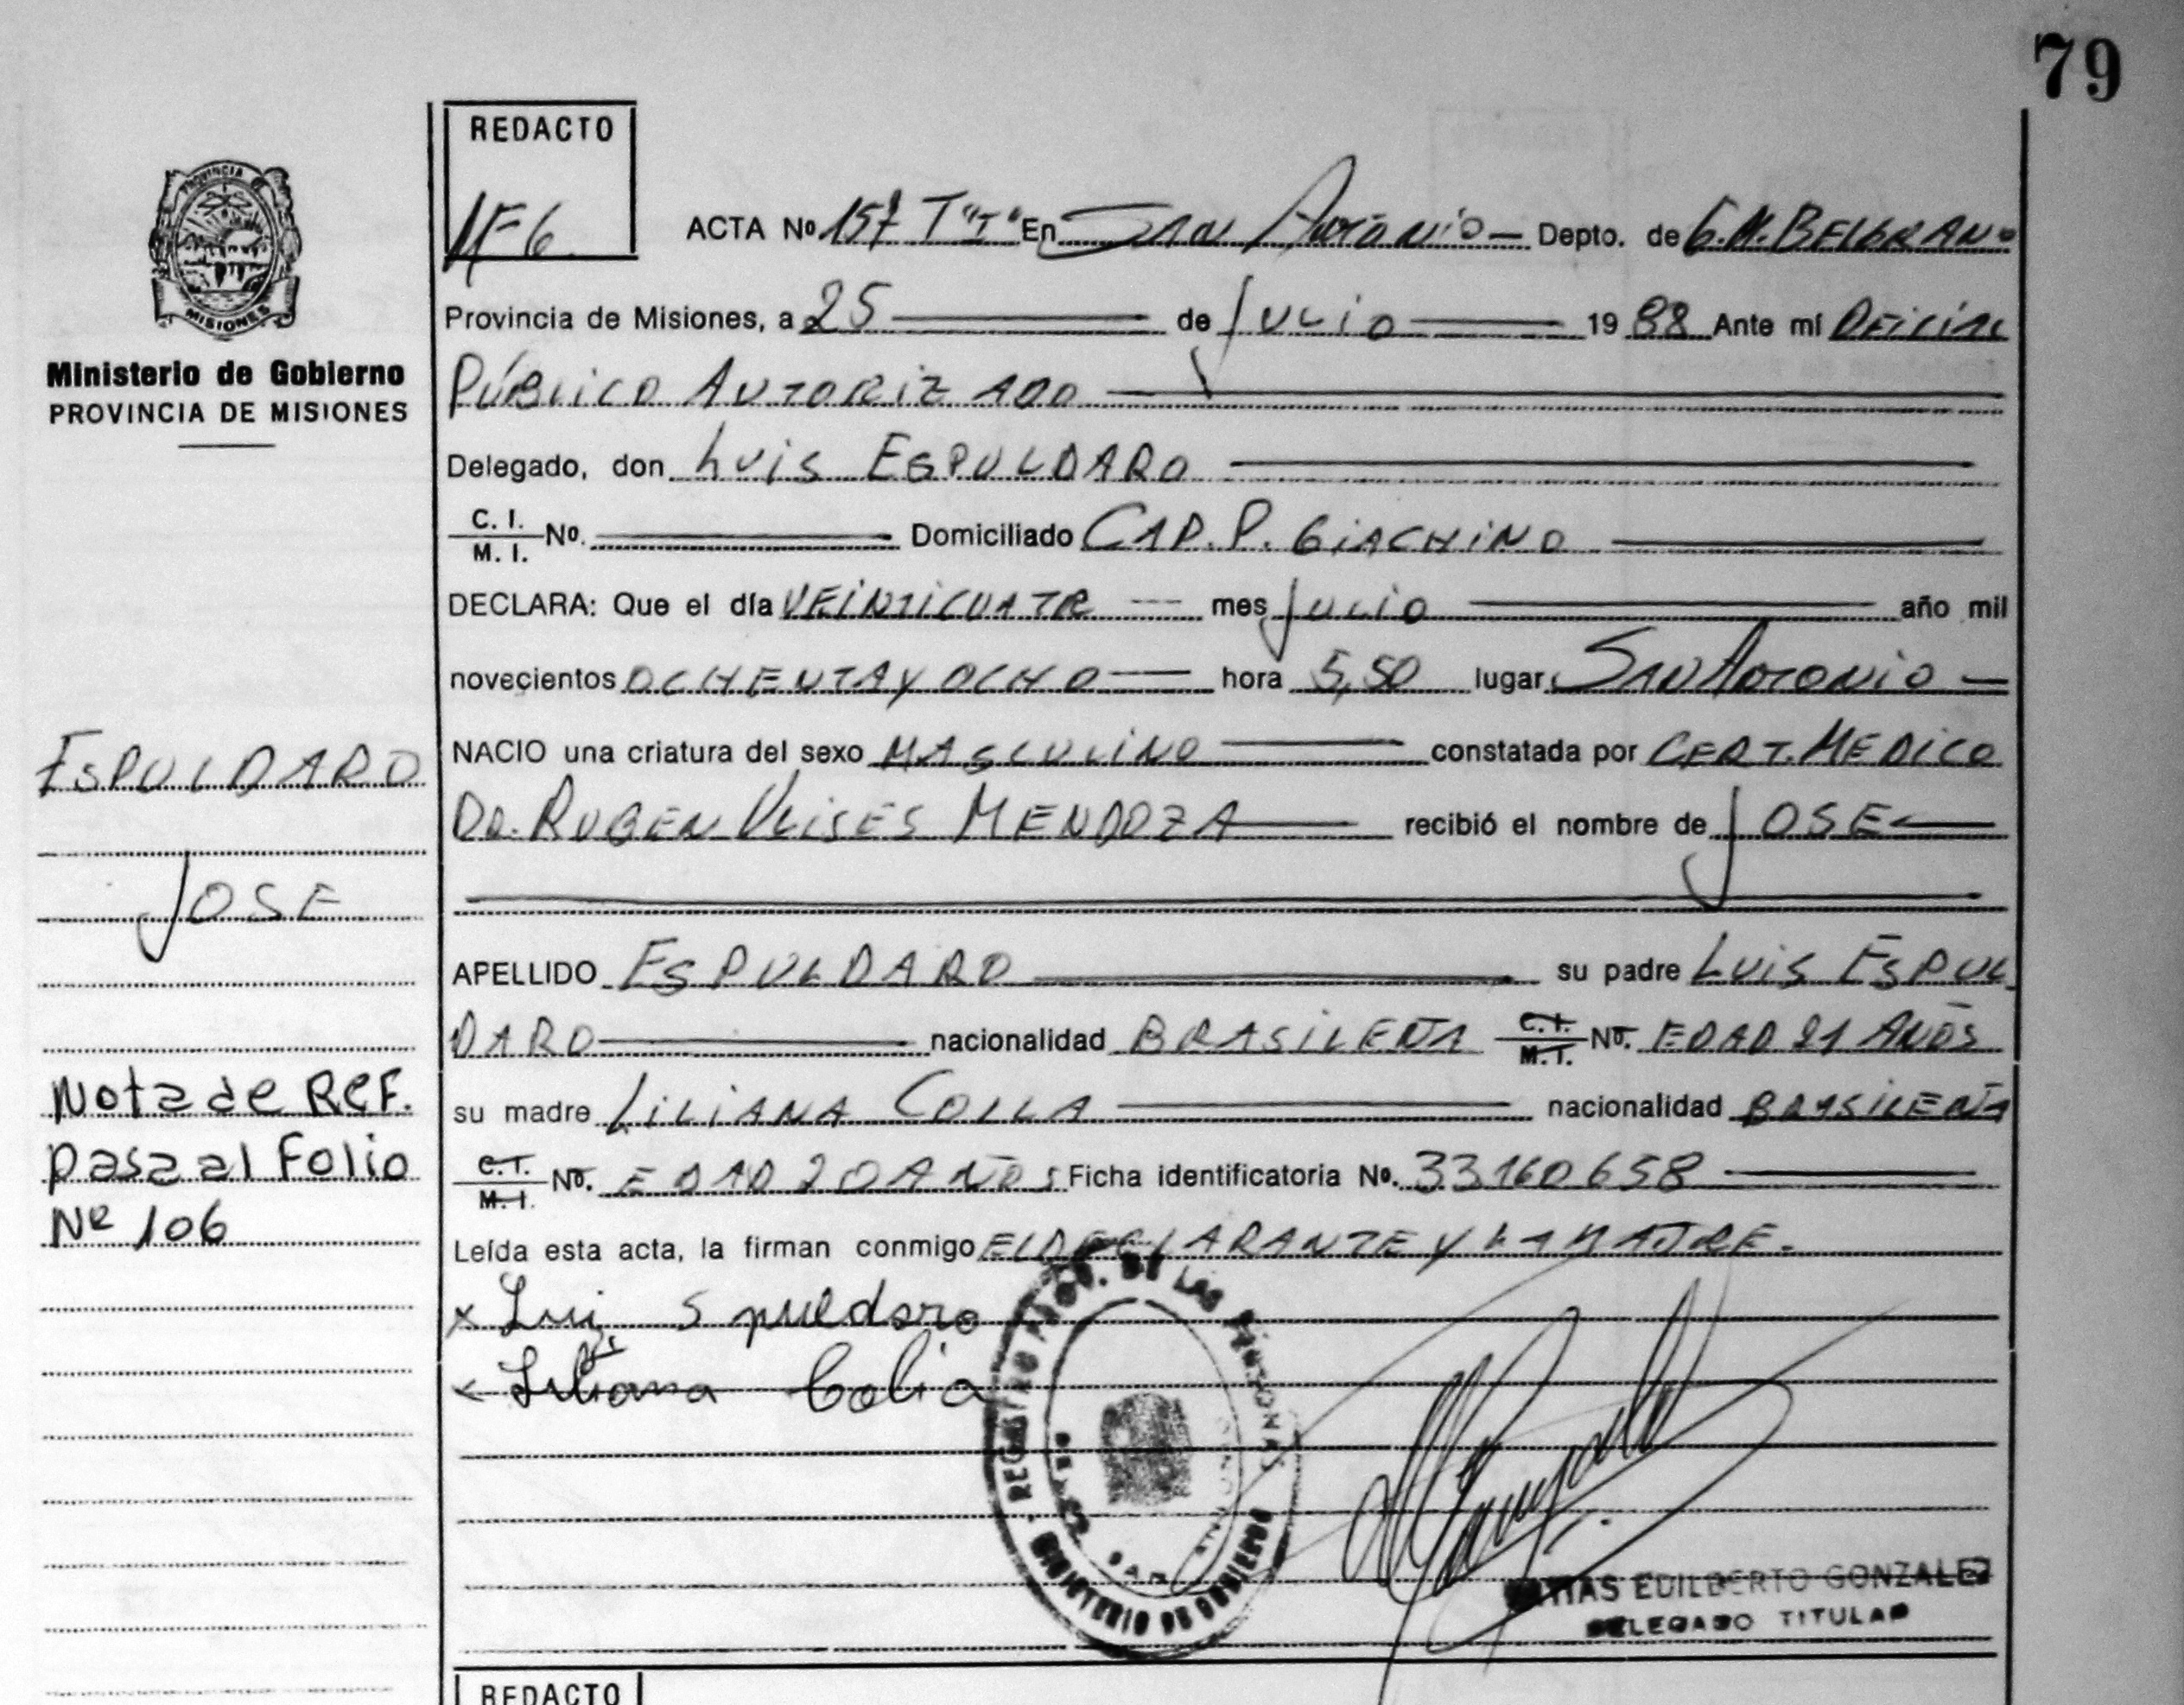 79
REDACTO
1F6
ACTA Nº 157 T"I" En San Antonio Depto. de G.M. BELGRANO
PROVINCIA DE
MISIONES
Ministerio de Gobierno
PROVINCIA DE MISIONES
Provincia de Misiones, a 25 de Julio 19 88 Ante mí OFICIAL
PÚBLICO AUTORIZADO
Delegado, don Luis ESPULDARO
C. I. / M. I. Nº. Domiciliado CAP. P. GIACHINO
DECLARA: Que el día VEINTICUATR mes Julio año mil
novecientos OCHENTA Y OCHO hora 5,50 lugar San Antonio
NACIO una criatura del sexo MASCULINO constatada por CERT. MEDICO
DR. RUBEN ULISES MENDOZA recibió el nombre de JOSE
ESPULDARO
JOSE
APELLIDO ESPULDARO su padre LUIS ESPUL
DARO nacionalidad BRASILEÑA C.I. / M.I. Nº. EDAD 21 AÑOS
su madre LILIANA COLLA nacionalidad BRASILEÑA
C.I. / M.I. Nº. EDAD 20 AÑOS Ficha identificatoria Nº. 33160658
Nota de REF.
pasa al Folio
Nº 106
Leída esta acta, la firman conmigo EL DECLARANTE Y LA MADRE.
x Luis Spuldaro
x Liliana Colia
REGISTRO PROV. DE LAS PERSONAS
MINISTERIO DE GOBIERNO
EDILBERTO GONZALEZ
DELEGADO TITULAR
REDACTO